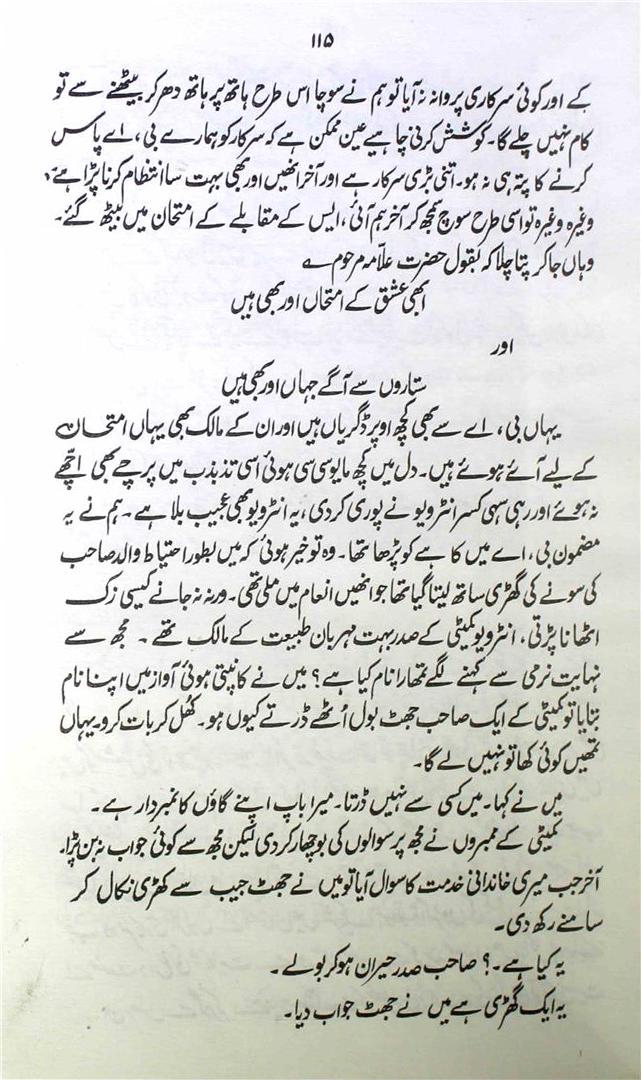 ۱۱۵
کے اور کوئی سرکاری پروانہ نہ آیا تو ہم نے سوچا اس طرح ہاتھ پر ہاتھ دھر کر بیٹھنے سے تو
کام نہیں چلے گا۔ کوشش کرنی چاہیے عین ممکن ہے کہ سرکار کو ہمارے بی، اے پاس
کرنے کا پتہ ہی نہ ہو۔ اتنی بڑی سرکار ہے اور آخر انھیں اور بھی بہت سا انتظام کرنا پڑا ہے،
وغیرہ وغیرہ تو اسی طرح سوچ سمجھ کر آخر ہم آئی، ایس کے مقابلے کے امتحان میں بیٹھ گئے۔
وہاں جا کر پتا چلا کہ بقول حضرت علامہ مرحوم ؎
ابھی عشق کے امتحاں اور بھی ہیں
اور
ستاروں سے آگے جہاں اور بھی ہیں
یہاں بی، اے سے بھی کچھ اوپر ڈگریاں ہیں اور ان کے مالک بھی یہاں امتحان
کے لیے آئے ہوئے ہیں۔ دل میں کچھ مایوسی سی ہوئی اسی تذبذب میں پرچے بھی اچھے
نہ ہوئے اور رہی سہی کسر انٹرویو نے پوری کر دی، یہ انٹرویو بھی عجیب بلا ہے۔ ہم نے یہ
مضمون بی، اے میں کاہے کو پڑھا تھا۔ وہ تو خیر ہوئی کہ میں بطور احتیاط والد صاحب
کی سونے کی گھڑی ساتھ لیتا گیا تھا جو انھیں انعام میں ملی تھی۔ ورنہ نہ جانے کیسی زک
اٹھانا پڑتی، انٹرویو کمیٹی کے صدر بہت مہربان طبیعت کے مالک تھے۔ مجھ سے
نہایت نرمی سے کہنے لگے تمھارا نام کیا ہے؟ میں نے کانپتی ہوئی آواز میں اپنا نام
بتایا تو کمیٹی کے ایک صاحب جھٹ بول اُٹھے ڈرتے کیوں ہو۔ کھُل کر بات کرو۔ یہاں
تمھیں کوئی کھا تو نہیں لے گا۔
میں نے کہا۔ میں کسی سے نہیں ڈرتا۔ میرا باپ اپنے گاؤں کا نمبردار ہے۔
کمیٹی کے ممبروں نے مجھ پر سوالوں کی بوچھار کر دی لیکن مجھ سے کوئی جواب نہ بن پڑا۔
آخر جب میری خاندانی خدمت کا سوال آیا تو میں نے جھٹ جیب سے گھڑی نکال کر
سامنے رکھ دی۔
یہ کیا ہے۔؟ صاحب صدر حیران ہو کر بولے۔
یہ ایک گھڑی ہے میں نے جھٹ جواب دیا۔